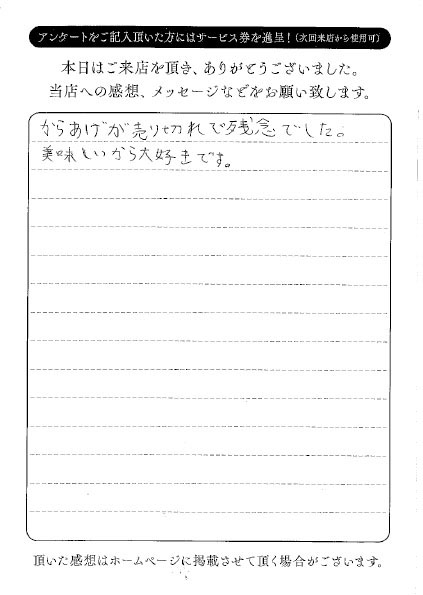 アンケートをご記入頂いた方にはサービス券を進呈！(次回来店から使用可)
本日はご来店を頂き、ありがとうございました。
当店への感想、メッセージなどをお願い致します。
からあげが売り切れで残念でした。
美味しいから大好きです。
頂いた感想はホームページに掲載させて頂く場合がございます。